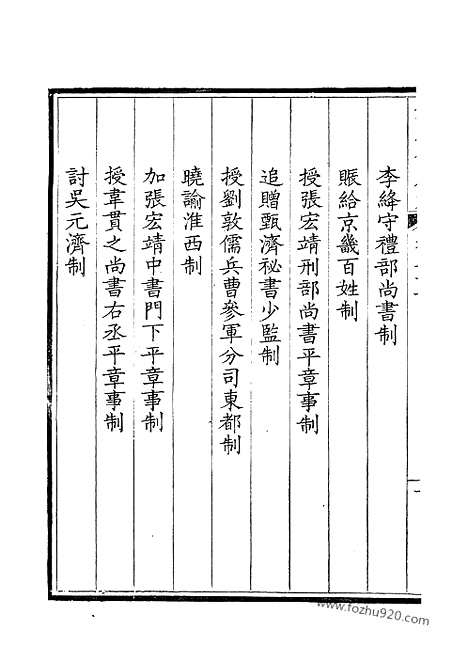 李絳守禮部尚書制
賑給京畿百姓制
授張宏靖刑部尚書平章事制
追贈甄濟祕書少監制
授劉敦儒兵曹參軍分司東都制
曉諭淮西制
加張宏靖中書門下平章事制
授韋貫之尚書右丞平章事制
討吳元濟制
www.fozhu920.com